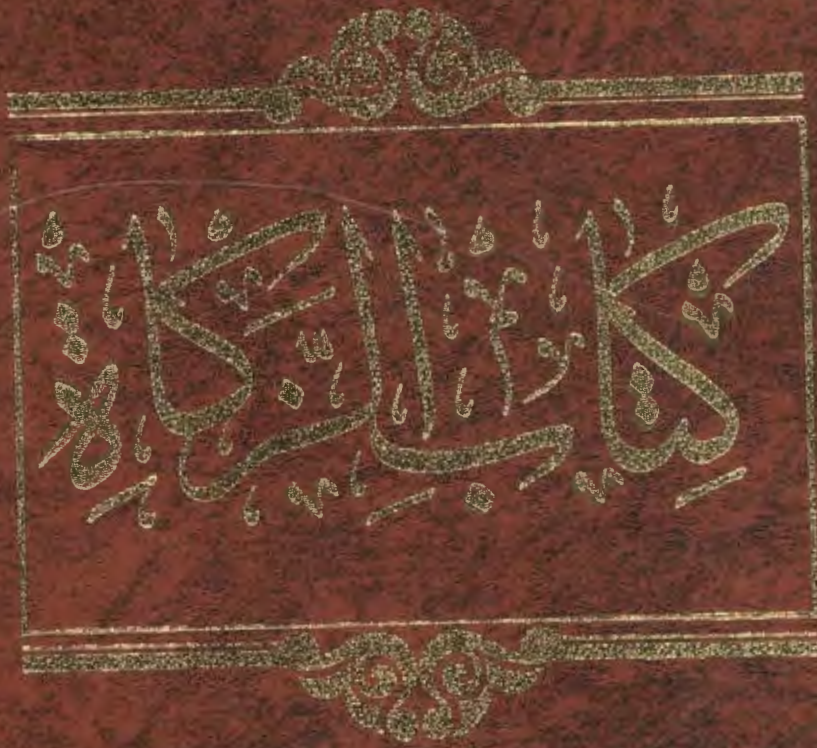 كِتَابُ الزَّكَاةِ